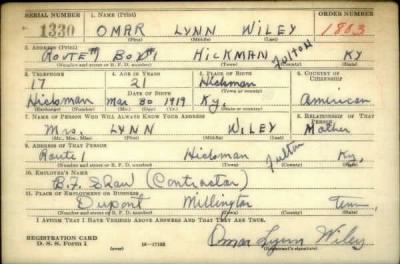 SERIAL NUMBER 1. NAME (Print) ORDER NUMBER
1330 OMAR LYNN WILEY 1853
(First) (Middle) (Last)
2. ADDRESS (Print)
ROUTE #1 BOX #1 HICKMAN FULTON KY
(Number and street or R. F. D. number) (Town) (County) (State)
3. TELEPHONE 4. AGE IN YEARS 5. PLACE OF BIRTH 6. COUNTRY OF CITIZENSHIP
17 21 Hickman
DATE OF BIRTH (Town or county)
Hickman Mar 30 1919 Ky. American
(Exchange) (Number) (Mo.) (Day) (Yr.) (State or country)
7. NAME OF PERSON WHO WILL ALWAYS KNOW YOUR ADDRESS 8. RELATIONSHIP OF THAT PERSON
Mrs. LYNN WILEY Mother
(Mr., Mrs., Miss) (First) (Middle) (Last)
9. ADDRESS OF THAT PERSON
Route 1 Hickman Fulton Ky.
(Number and street or R. F. D. number) (Town) (County) (State)
10. EMPLOYER'S NAME
B.F. Shaw (Contractor)
11. PLACE OF EMPLOYMENT OR BUSINESS
Dupont Millington Tenn.
(Number and street or R. F. D. number) (Town) (County) (State)
I AFFIRM THAT I HAVE VERIFIED ABOVE ANSWERS AND THAT THEY ARE TRUE.
REGISTRATION CARD
D. S. S. Form 1 (over) 16—17105 Omar Lynn Wiley
(Registrant's signature)